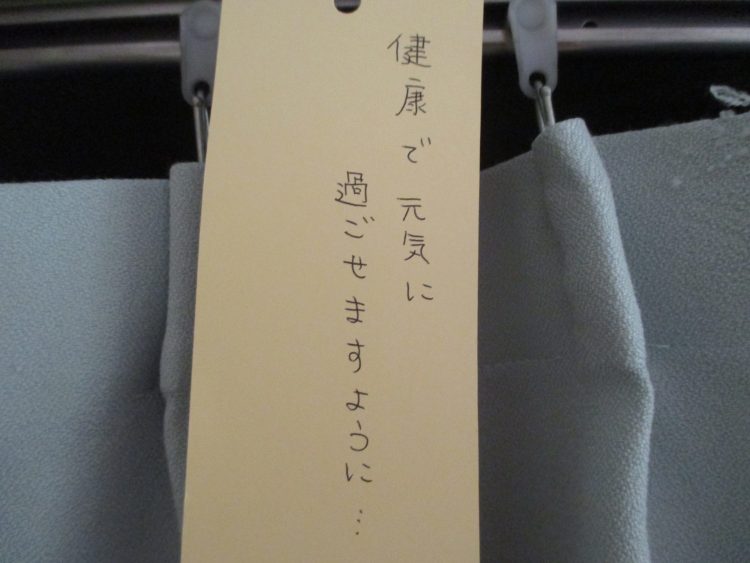 健康で元気に
過ごせますように…